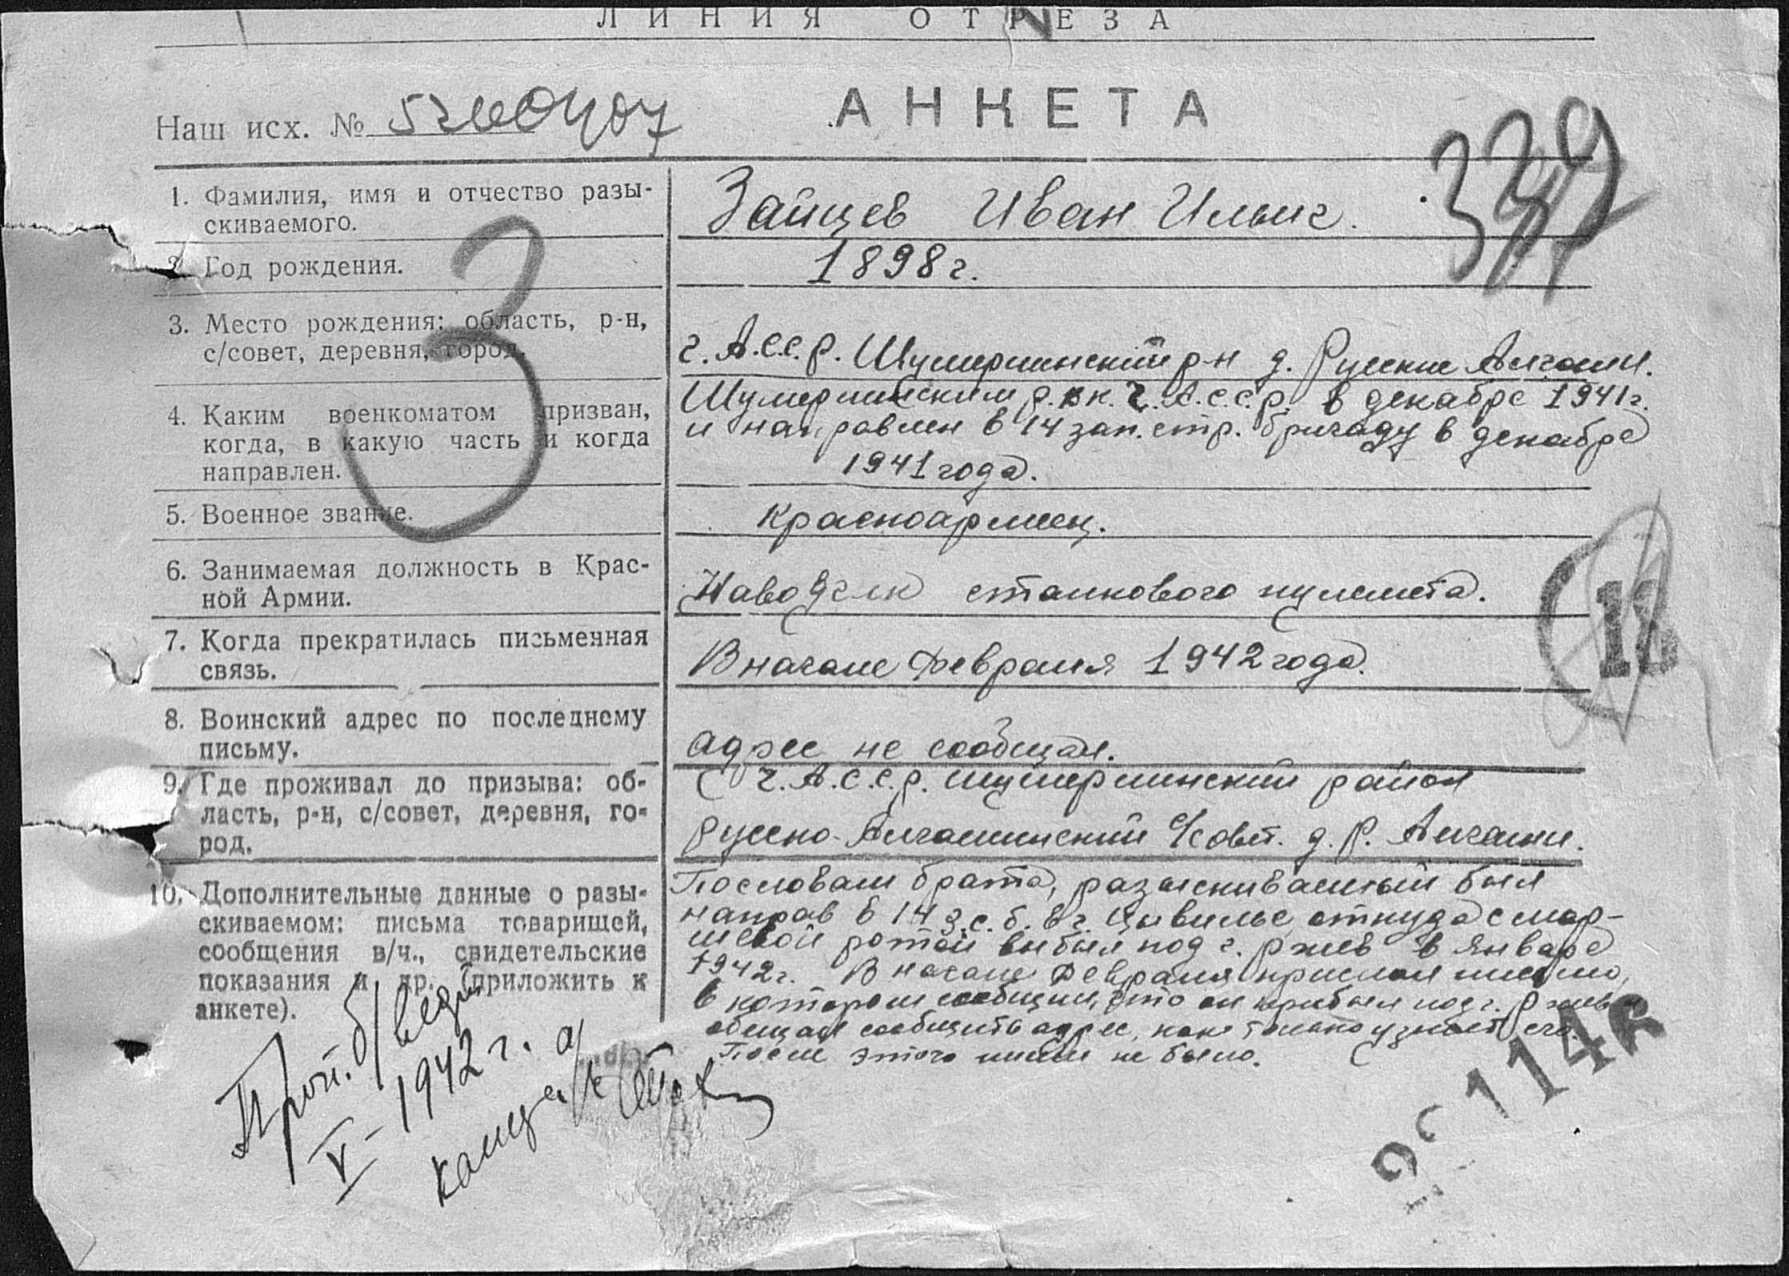 ЛИНИЯ ОТРЕЗА
АНКЕТА
Наш исх. №
339
1. Фамилия, имя и отчество разы-
скиваемого.
Зайцев Иван Ильич.
2. Год рождения.
1898 г.
3. Место рождения: область, р-н,
с/совет, деревня, город.
Ч.А.С.С.Р. Шумерлинский р-н д. Русские Алгаши.
4. Каким военкоматом призван,
когда, в какую часть и когда
направлен.
Шумерлинским р.в.к. Ч.А.С.С.Р. в декабре 1941 г.
и направлен в 14 зап. стр. бригаду в декабре
1941 года.
5. Военное звание.
Красноармеец.
6. Занимаемая должность в Крас-
ной Армии.
Наводчик станкового пулемета.
7. Когда прекратилась письменная
связь.
В начале февраля 1942 года.
8. Воинский адрес по последнему
письму.
адрес не сообщал.
9. Где проживал до призыва: об-
ласть, р-н, с/совет, деревня, го-
род.
Ч.А.С.С.Р. Шумерлинский район
Русско-Алгашинский с/совет. д. Р. Алгаши.
10. Дополнительные данные о разы-
скиваемом: письма товарищей,
сообщения в/ч., свидетельские
показания и др. (приложить к
анкете).
По словам брата, разыскиваемый был
направ в 14 з.с.б. в г. Цивильс откуда с мар-
шевой ротой выбыл под г. Ржев в январе
1942 г. В начале февраля прислал письмо,
в котором сообщил, что он прибыл под г. Ржев
обещал сообщить адрес, как только узнает его.
После этого писем не было.
12
Проп. б/вести
V - 1942 г.
3